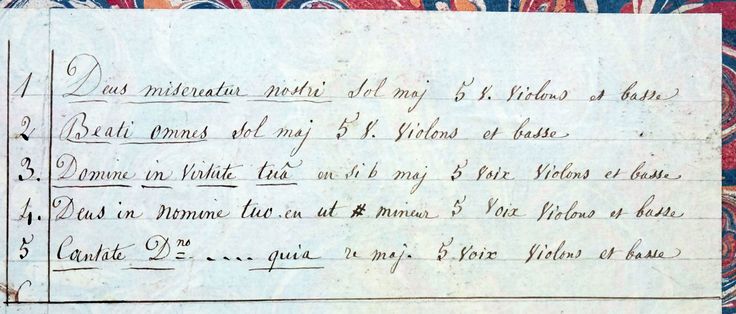 1 Deus misereatur nostri sol maj 5 v. violons et basse
2 Beati omnes sol maj 5 v. violons et basse
3. Domine in virtute tuâ en si b maj 5 voix violons et basse
4. Deus in nomine tuo en ut # mineur 5 voix violons et basse
5 Cantate Dno .... quia re maj. 5 voix violons et basse